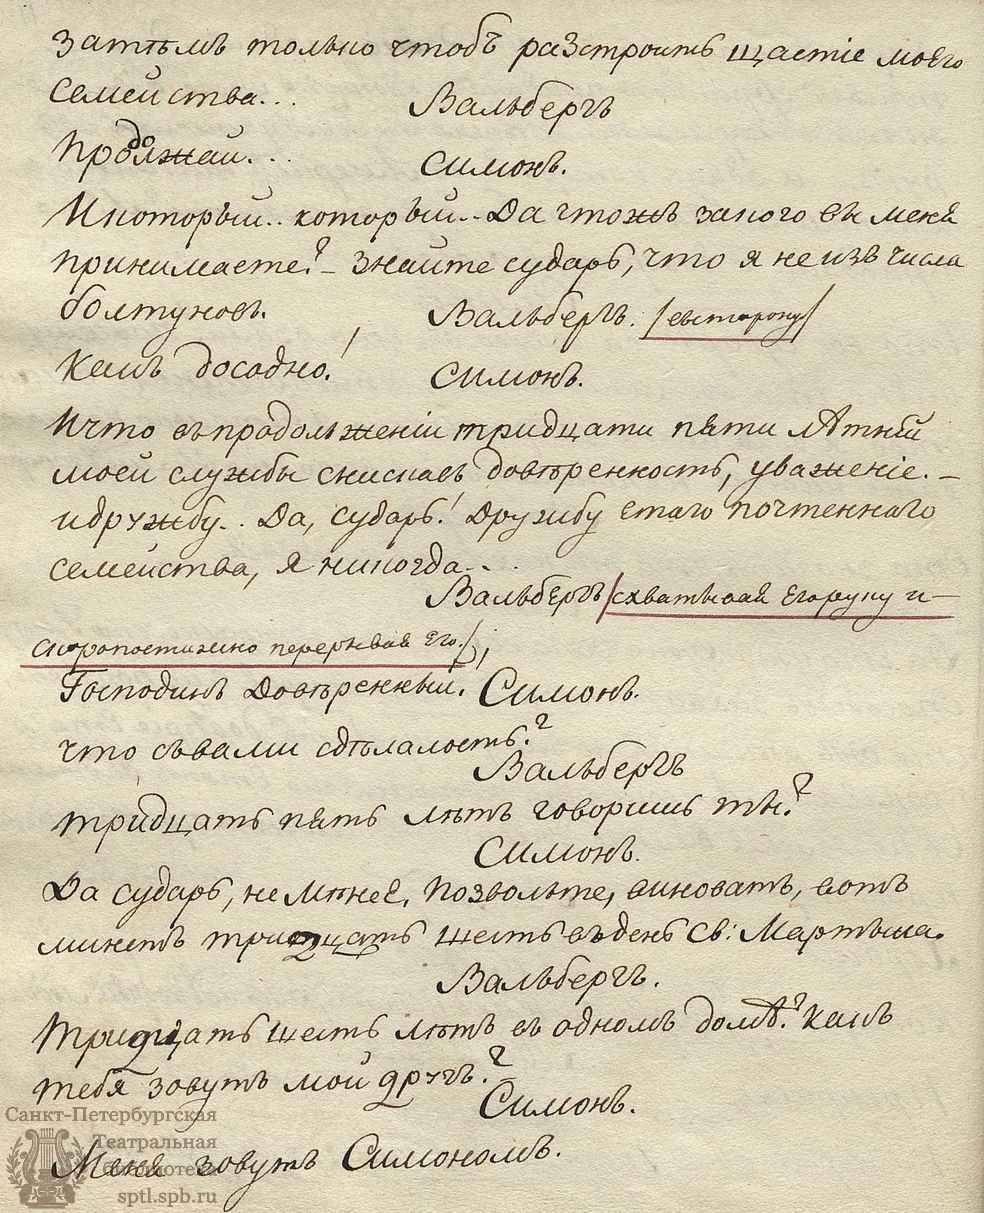 затѣмъ только чтобъ разстроить щастіе моего
семейства...
Вальбергъ
Продолжай...
Симонъ.
И который.. который.. Да чтожъ за кого вы меня
принимаете? - Знайте сударь, что я не изъ числа
болтуновъ.
Вальбергъ. /въ сторону/
Какъ досадно!
Симонъ.
И что въ продолженіи тридцати пяти лѣтній
моей службы снискавъ довѣренность, уваженіе. -
и дружбу.. Да, сударь! Дружбу етаго почтеннаго
семейства, я никогда...
Вальбергъ /схватывая его руку и -
скоропостижно перерывая его./
Господинъ Довѣренный.
Симонъ.
что съ вами сдѣлалось?
Вальбергъ
тридцать пять лѣтъ говоришь ты?
Симонъ.
Да сударь, не мѣнее. Позвольте, виноватъ, вотъ
минетъ тридцать шесть въ день Св: Мартына.
Вальбергъ.
Тридцать шесть лѣтъ въ одномъ домѣ? какъ
тебя зовутъ мой другъ?
Симонъ.
Меня зовутъ Симономъ.
Санкт-Петербургская
Театральная
библиотека
sptl.spb.ru